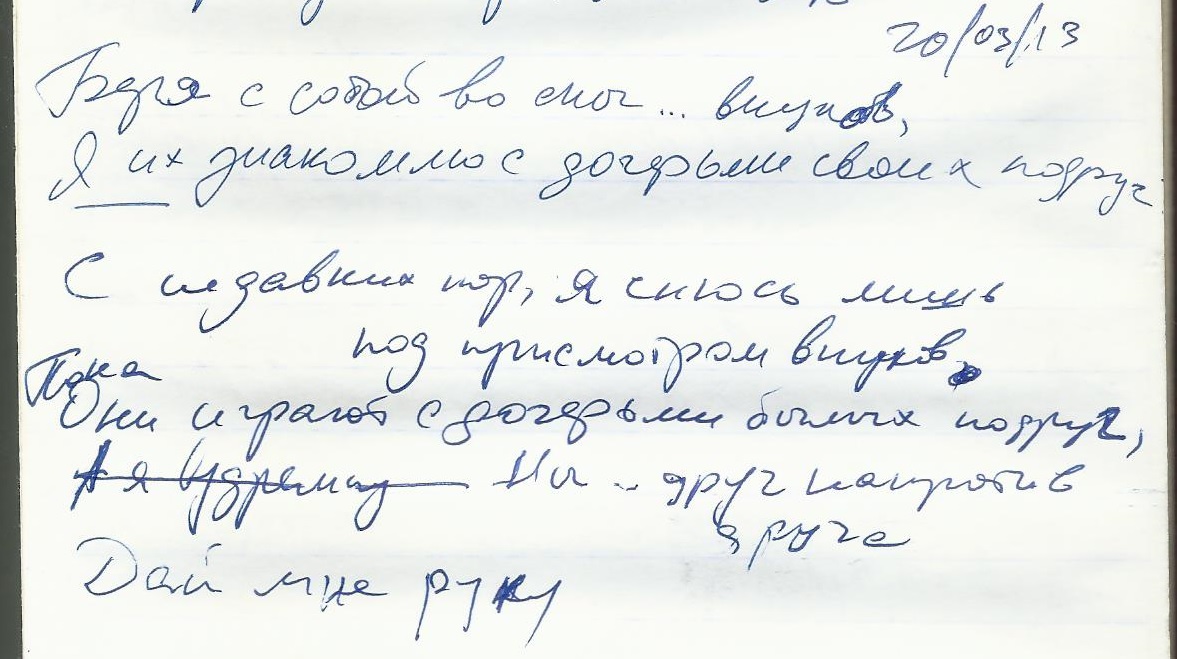 20/03/13
Беря с собой во сны... внуков,
Я их знакомлю с дочерьми своих подруг
С недавних пор, я снюсь лишь
под присмотром внуков,
Пока
Они играют с дочерьми былых подруг,
А я вздремну Мы .. друг напротив
друга
Дай мне руку